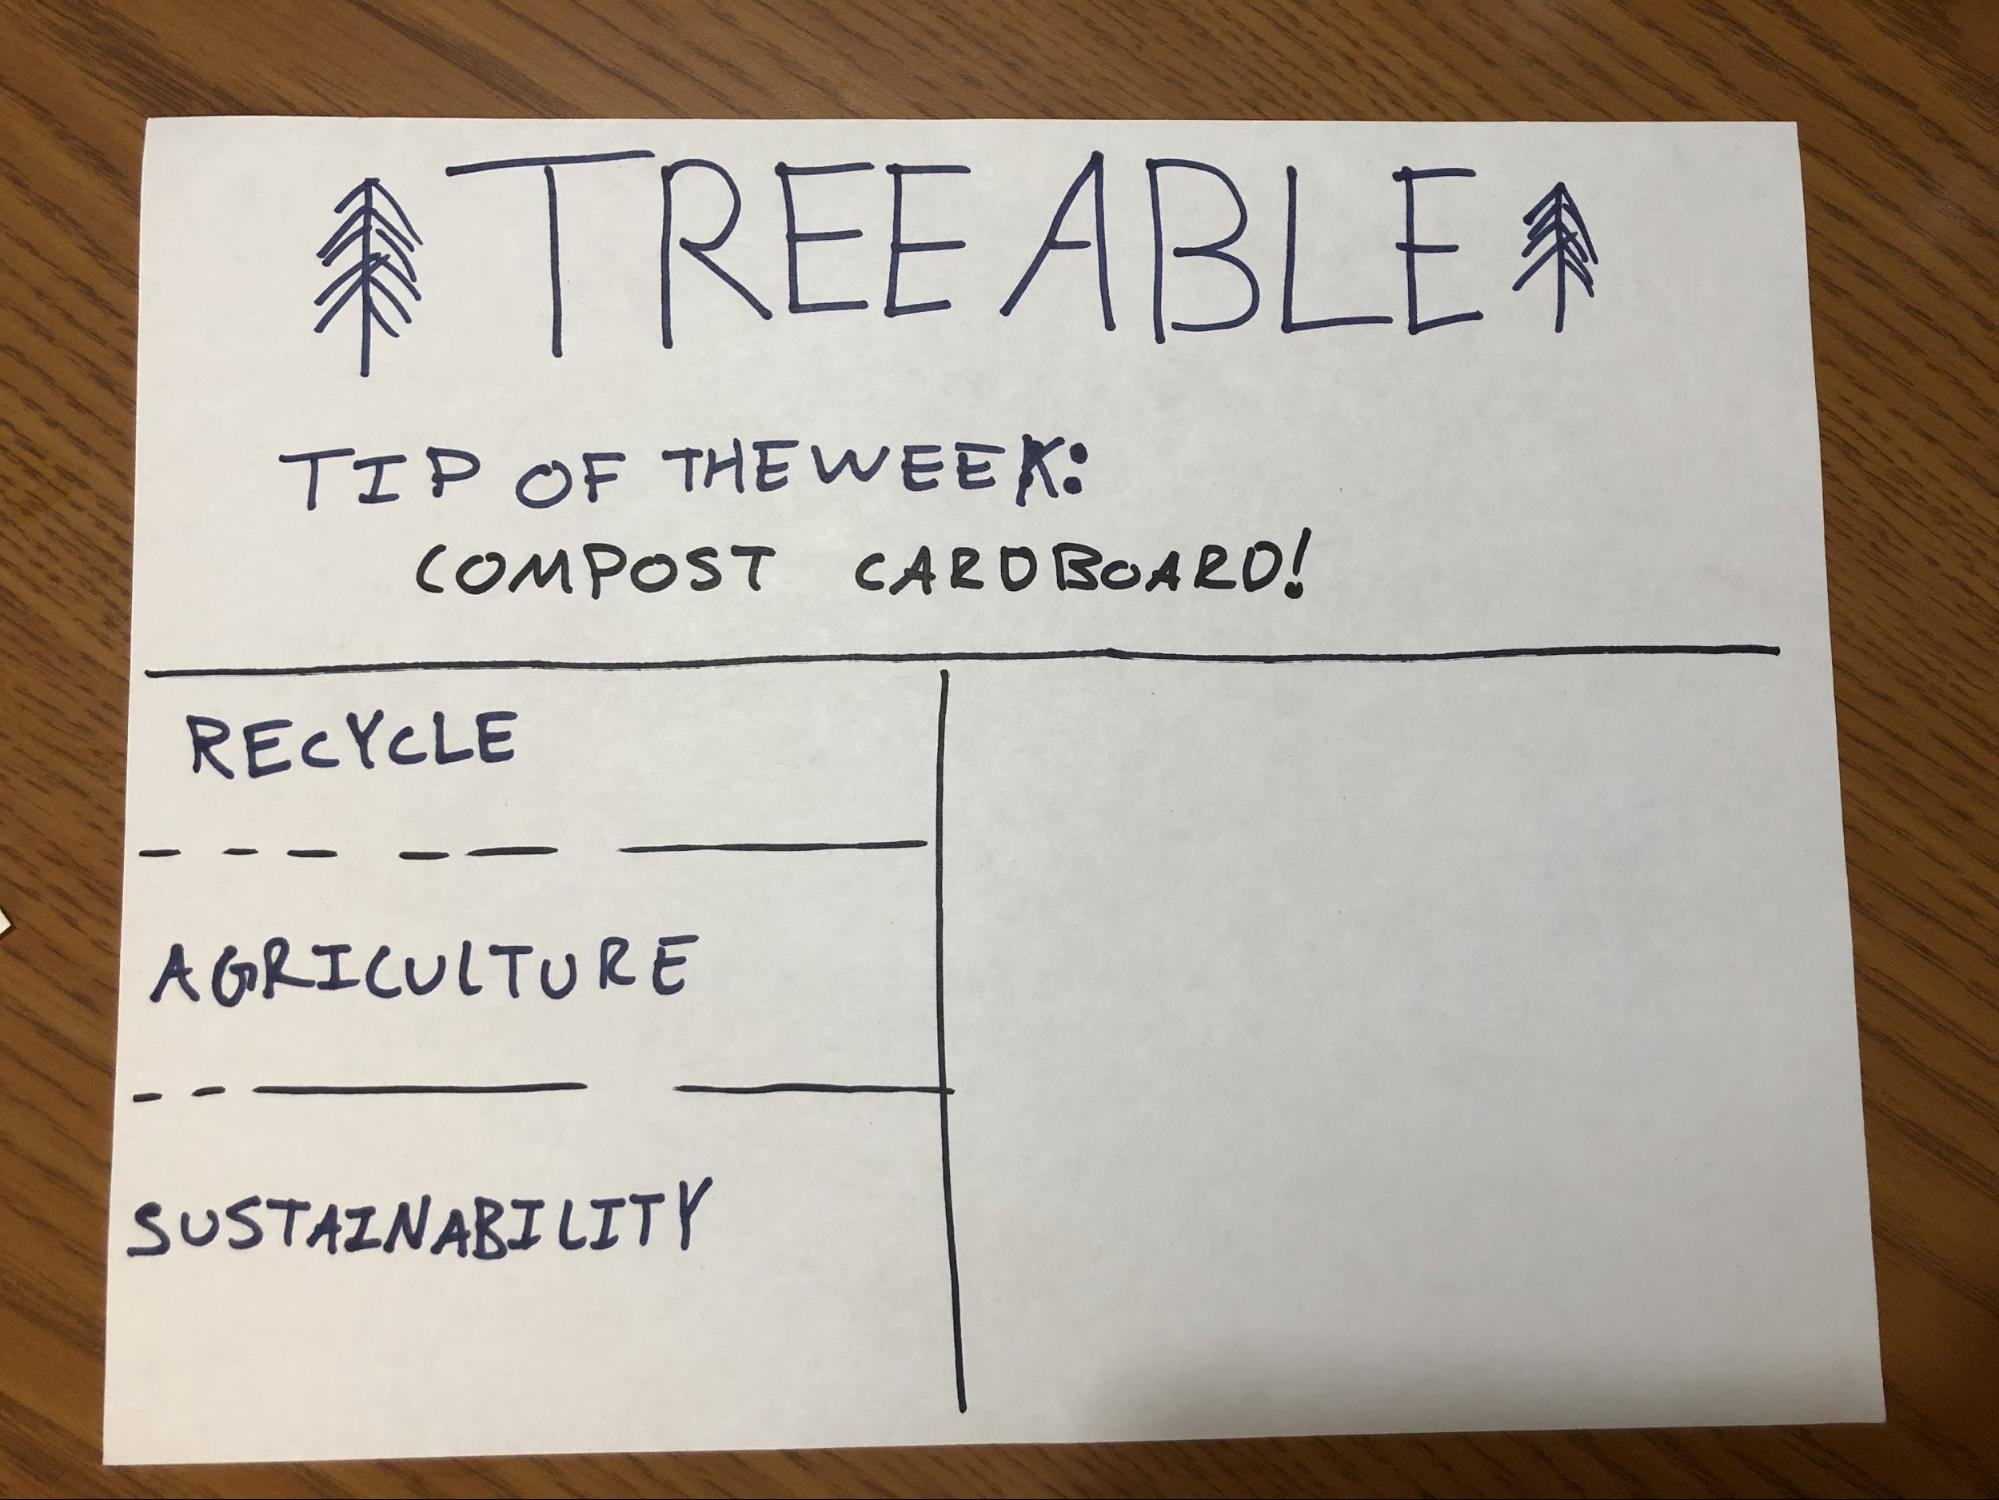 TREEABLE
TIP OF THE WEEK:
COMPOST CARDBOARD!
RECYCLE
AGRICULTURE
SUSTAINABILITY